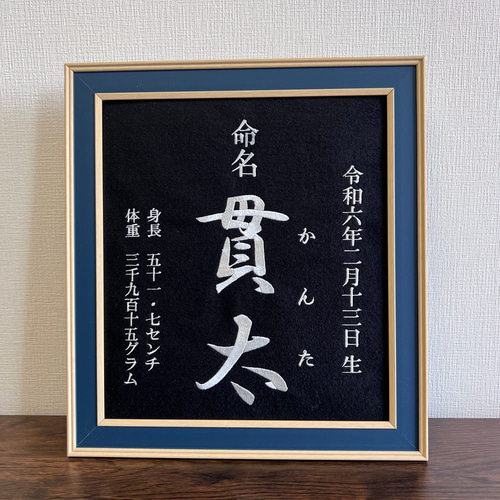 令和六年二月十三日 生
命名
貫太
かんた
身長 五十一・七センチ
体重 三千九百十五グラム